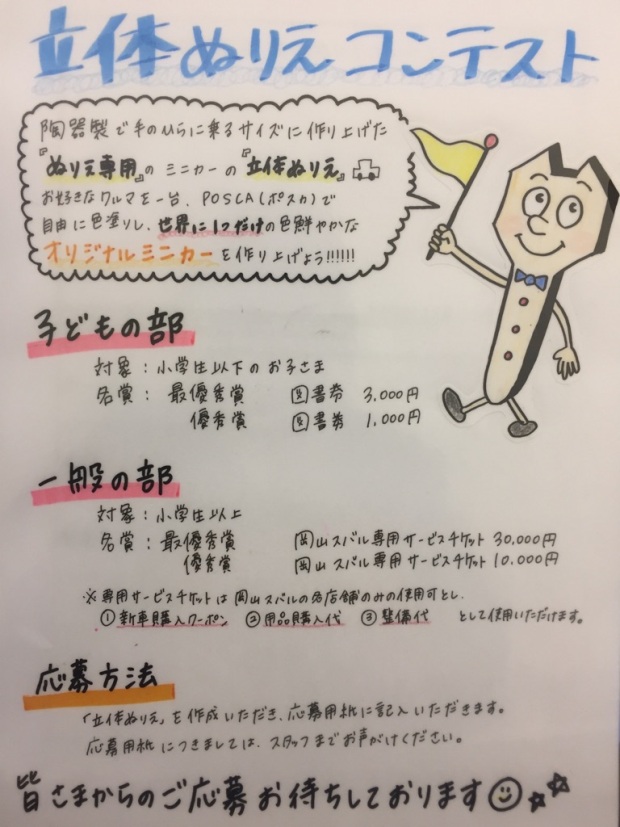 立体ぬりえコンテスト
陶器製で手のひらに乗るサイズに作り上げた
『ぬりえ専用』のミニカーの『立体ぬりえ』
お好きなクルマを一台、POSCA(ポスカ)で
自由に色塗りし、世界に1つだけの色鮮やかな
オリジナルミニカーを作り上げよう!!!!!!
子どもの部
対象：小学生以下のお子さま
各賞：最優秀賞 図書券 3,000円
優秀賞 図書券 1,000円
一般の部
対象：小学生以上
各賞：最優秀賞 岡山スバル専用サービスチケット 30,000円
優秀賞 岡山スバル専用サービスチケット 10,000円
※専用サービスチケットは岡山スバルの各店舗のみの使用可とし、
①新車購入クーポン ②用品購入代 ③整備代 として使用いただけます。
応募方法
「立体ぬりえ」を作成いただき、応募用紙に記入いただきます。
応募用紙につきましては、スタッフまでお声がけください。
皆さまからのご応募お待ちしております